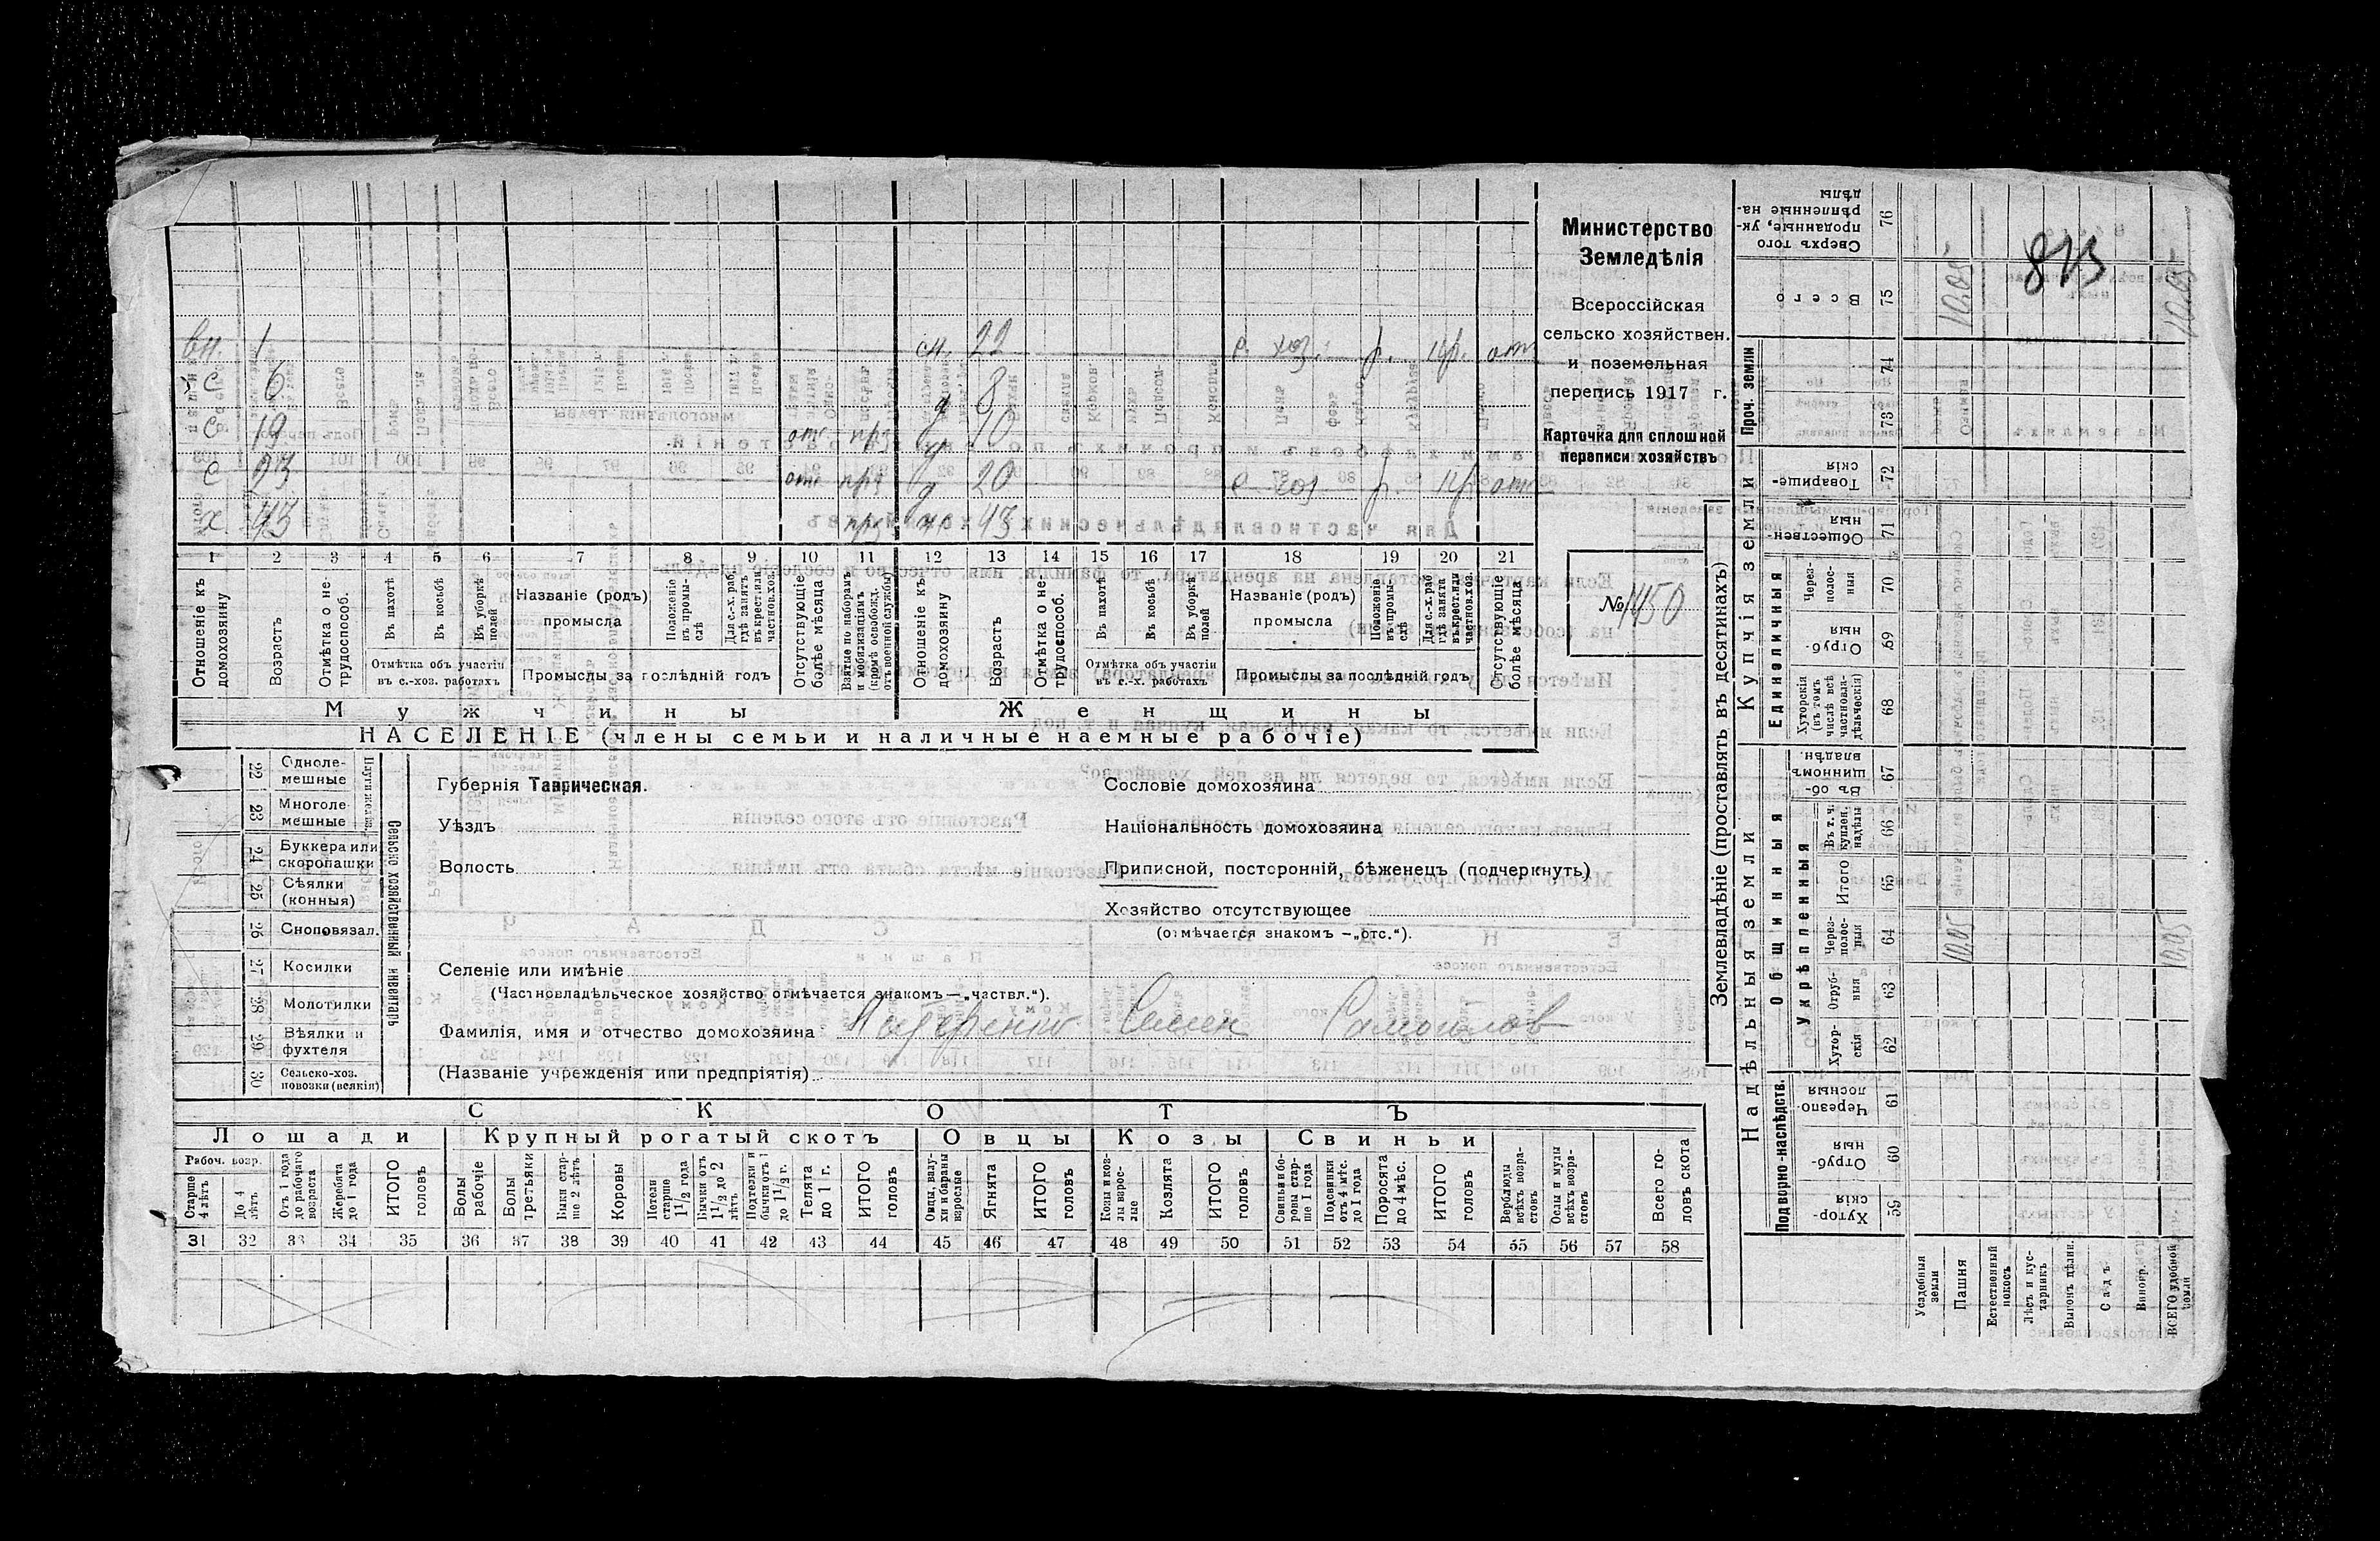 Министерство
Земледѣлія
Всероссійская
сельско хозяйствен.
и поземельная
перепись 1917 г.
Карточка для сплошной
переписи хозяйствъ
№ 1450
813
вн. 1 сн. 22 с. хоз. р. кр. отс
с 6 д 8
с 19 отс прз д 10
с 23 отс прз д 20 с хоз. р. кр отс
х 43 прз 43
1 2 3 4 5 6 7 8 9 10 11 12 13 14 15 16 17 18 19 20 21
Отношеніе къ домохозяину
Возрастъ
Отмѣтка о не-трудоспособ.
Въ пахотѣ
Въ косьбѣ
Въ уборкѣ полей
Отмѣтка объ участіи въ с.-хоз. работахъ
Названіе (родъ) промысла
Положеніе въ промыслѣ
Для с.-х. раб. гдѣ занятъ въ крест. или частнов. хоз.
Промыслы за послѣдній годъ
Отсутствующіе болѣе мѣсяца
Взятые по наборамъ и мобилизаціямъ (кромѣ освобожд. отъ военной службы)
Отношеніе къ домохозяину
Возрастъ
Отмѣтка о не-трудоспособ.
Въ пахотѣ
Въ косьбѣ
Въ уборкѣ полей
Отмѣтка объ участіи въ с.-х. работахъ
Названіе (родъ) промысла
Положеніе въ промыслѣ
Для с.-х. раб. гдѣ занята въ крест. или частнов. хоз.
Промыслы за послѣдній годъ
Отсутствующіе болѣе мѣсяца
Мужчины
Женщины
НАСЕЛЕНІЕ (члены семьи и наличные наемные рабочіе)
Сельско хозяйственный инвентарь
22 Однолемешные
23 Многолемешные
24 Буккера или скоропашки
25 Сѣялки (конныя)
26 Сноповязал.
27 Косилки
28 Молотилки
29 Вѣялки и фухтеля
30 Сельско-хоз. повозки (всякія)
Губернія Таврическая.
Уѣздъ
Волость
Сословіе домохозяина
Національность домохозяина
Приписной, посторонній, бѣженецъ (подчеркнуть)
Хозяйство отсутствующее
(отмѣчается знакомъ —„отс.“).
Селеніе или имѣніе
(Частновладѣльческое хозяйство отмѣчается знакомъ—„частвл.“).
Фамилія, имя и отчество домохозяина Семен Самоилов
(Названіе учрежденія или предпріятія)
СКОТЪ
Лошади Крупный рогатый скотъ Овцы Козы Свиньи
Рабоч. возр.
Старше 4 лѣтъ
До 4 лѣтъ
Отъ 1 года до рабочаго возраста
Жеребята до 1 года
ИТОГО головъ
Волы рабочіе
Волы третьяки
Быки старше 2 лѣтъ
Коровы
Нетели старше 1 1/2 года
Бычки отъ 1 1/2 до 2 лѣтъ
Подтелки и бычки отъ 1 до 1 1/2 г.
Телята до 1 г.
ИТОГО головъ
Овцы, валухи и бараны взрослые
Ягнята
ИТОГО головъ
Козы и козлы взрослые
Козлята
ИТОГО головъ
Свиньи и боровы старше 1 года
Подсвинки отъ 4 мѣс. до 1 года
Поросята до 4 мѣс.
ИТОГО головъ
Верблюды всѣхъ возрастовъ
Ослы и мулы всѣхъ возрастовъ
Всего головъ скота
31 32 33 34 35 36 37 38 39 40 41 42 43 44 45 46 47 48 49 50 51 52 53 54 55 56 57 58
Землевладѣніе (проставлять въ десятинахъ)
Надѣльныя земли
Купчія земли
Проч. земли
Подворно-наслѣдств.
Общинныя
Укрѣпленныя
Единоличныя
Хуторскія 59
Отрубныя 60
Черезполосныя 61
Хуторскія 62
Отрубныя 63
Черезполосныя 64
Итого 65
Въ т. ч. куплен. надѣлы 66
Въ общинномъ владѣн. 67
Хуторскія (въ томъ числѣ всѣ частновладѣльческія) 68
Отрубныя 69
Черезполосныя 70
Общественныя 71
Товарищескія 72
73
74
Всего 75
Сверхъ того проданные, укрѣпленные надѣлы 76
Усадебныя земли
Пашня 10.05 10.05
Естественный покосъ
Лѣсъ и кустарникъ
Выгонъ цѣлин.
Садъ
Виногр.
ВСЕГО удобной земли 10.05 10.05